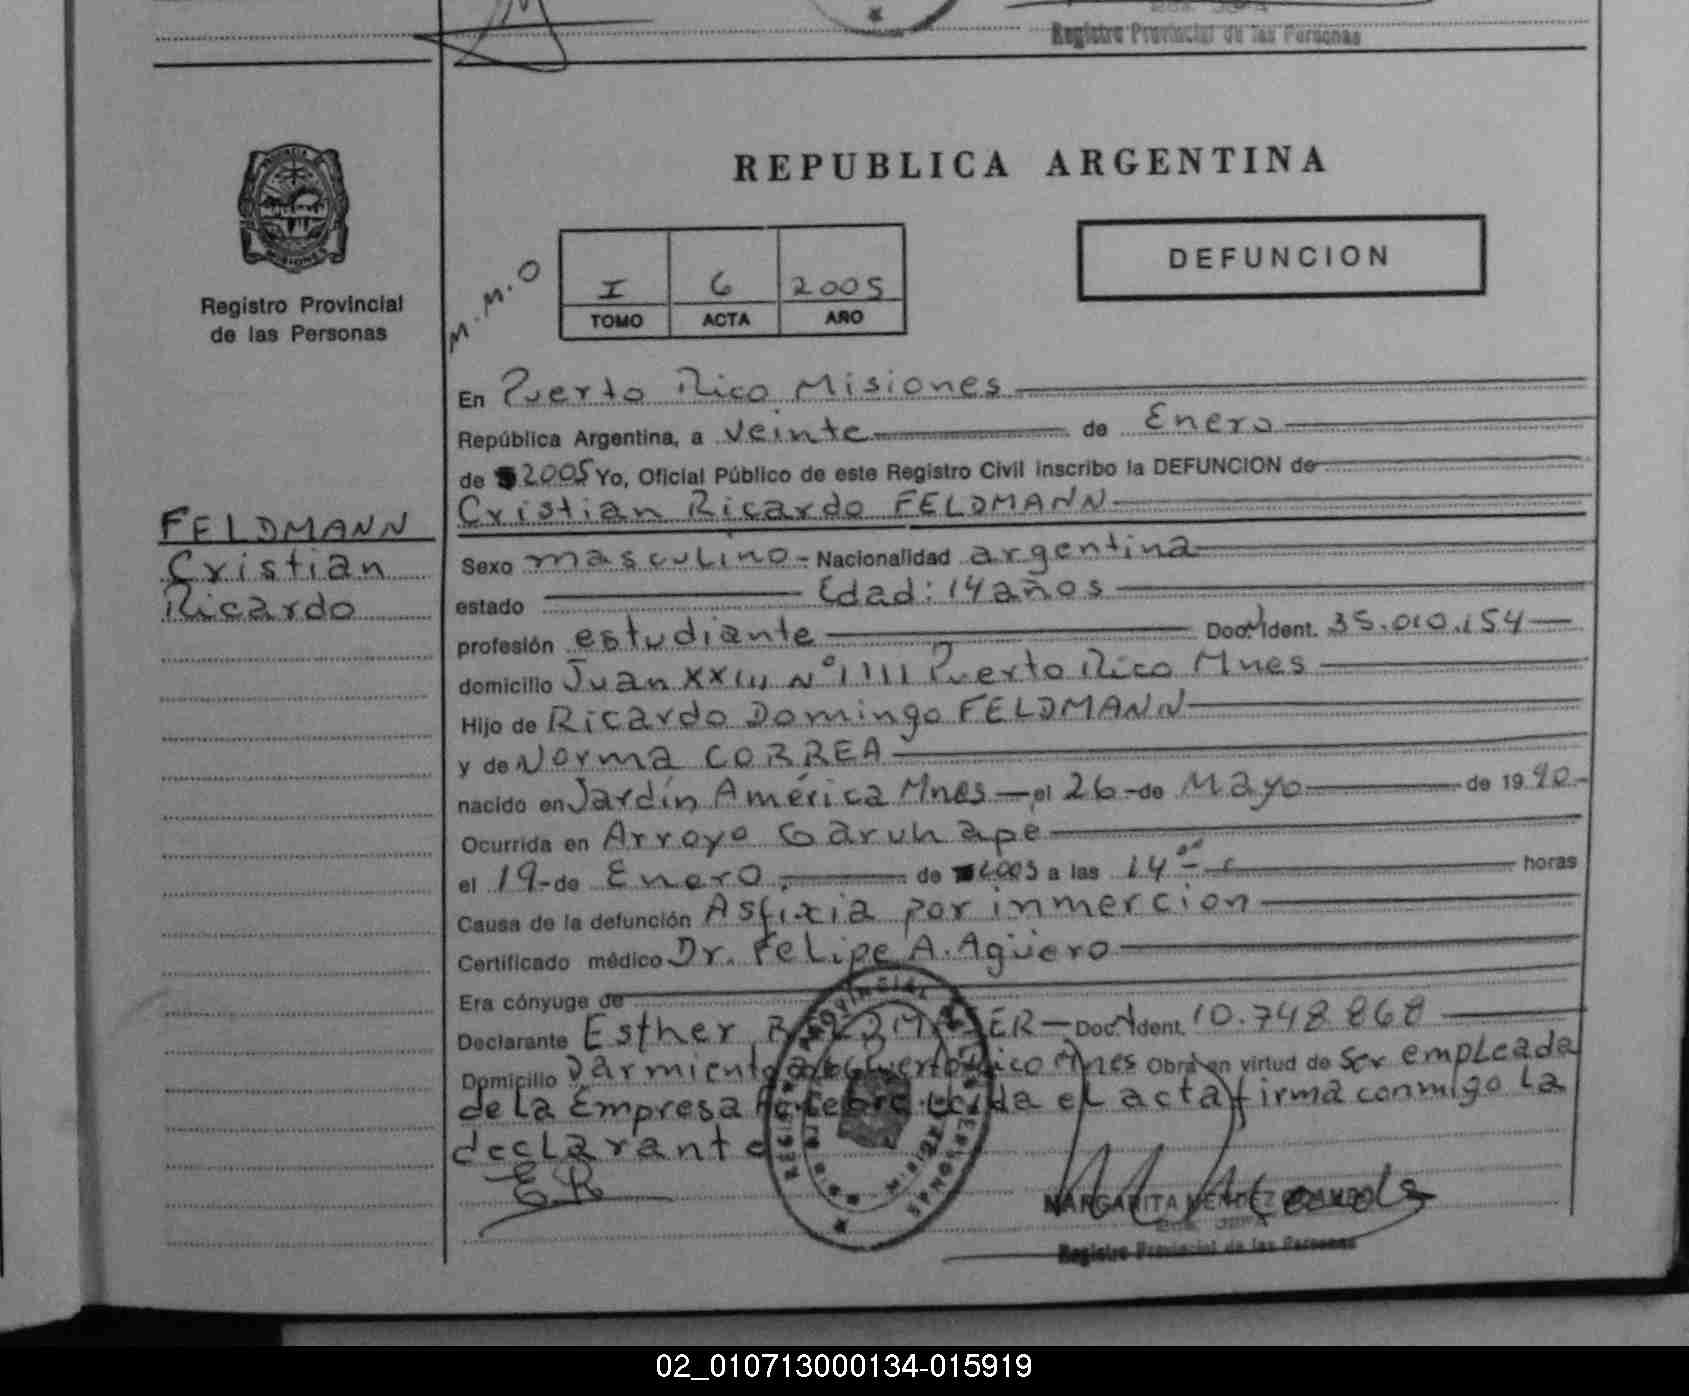 Registro Provincial de las Personas
REPUBLICA ARGENTINA
DEFUNCION
M.M.O
I 6 2005
TOMO ACTA AÑO
Registro Provincial
de las Personas
En Puerto Rico Misiones
República Argentina, a veinte de Enero
de 2005 Yo, Oficial Público de este Registro Civil inscribo la DEFUNCION de
Cristian Ricardo FELDMANN
FELDMANN
Cristian
Ricardo
Sexo masculino - Nacionalidad argentina
estado Edad: 14 años
profesión estudiante Doc. Ident. 35.010.154
domicilio Juan XXIII Nº 1111 Puerto Rico Mnes
Hijo de Ricardo Domingo FELDMANN
y de Norma CORREA
nacido en Jardín América Mnes - el 26 - de Mayo de 1990 -
Ocurrida en Arroyo Garuhapé
el 19 - de Enero de 2005 a las 14 horas
Causa de la defunción Asfixia por inmercion
Certificado médico Dr. Felipe A. Agüero
Era cónyuge de
Declarante Esther Doc. Ident. 10.748.868
Domicilio Sarmiento Puerto Rico Mnes Obra en virtud de Ser empleada
de la Empresa Leida el acta firma conmigo la
declarante
ER
REGISTRO PROVINCIAL DE LAS PERSONAS
MARGARITA MENDEZ
Registro Provincial de las Personas
02_010713000134-015919